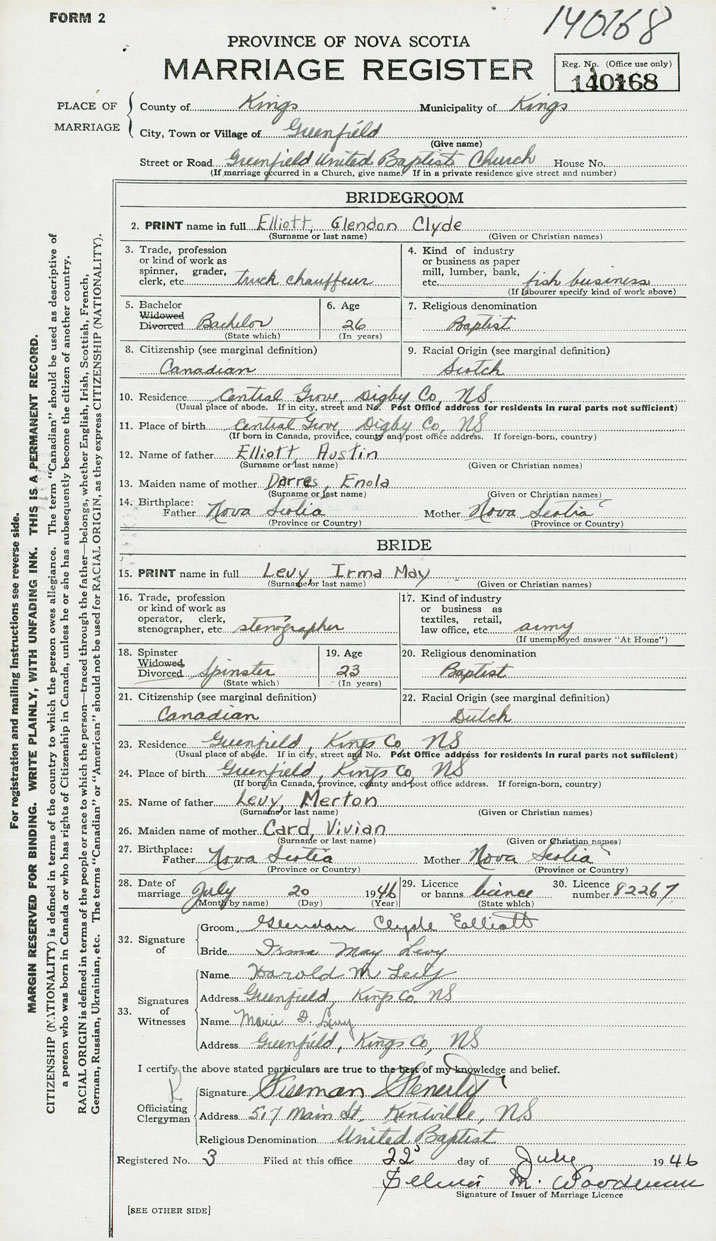 FORM 2
140168
PROVINCE OF NOVA SCOTIA
MARRIAGE REGISTER
Reg. No. (Office use only)
140168
PLACE OF MARRIAGE
County of Kings Municipality of Kings
City, Town or Village of Greenfield
(Give name)
Street or Road Greenfield United Baptist Church House No.
(If marriage occurred in a Church, give name. If in a private residence give street and number)
BRIDEGROOM
2. PRINT name in full Elliott, Glendon Clyde
(Surname or last name) (Given or Christian names)
3. Trade, profession or kind of work as spinner, grader, clerk, etc. truck chauffeur
4. Kind of industry or business as paper mill, lumber, bank, etc. fish business
(If labourer specify kind of work above)
5. Bachelor Widowed Divorced Bachelor
(State which)
6. Age 26
(In years)
7. Religious denomination
Baptist
8. Citizenship (see marginal definition)
Canadian
9. Racial Origin (see marginal definition)
Scotch
10. Residence Central Grove, Digby Co, NS.
(Usual place of abode. If in city, street and No. Post Office address for residents in rural parts not sufficient)
11. Place of birth Central Grove, Digby Co, NS
(If born in Canada, province, county and post office address. If foreign-born, country)
12. Name of father Elliott, Austin
(Surname or last name) (Given or Christian names)
13. Maiden name of mother Darres, Enola
(Surname or last name) (Given or Christian names)
14. Birthplace:
Father Nova Scotia Mother Nova Scotia
(Province or Country) (Province or Country)
BRIDE
15. PRINT name in full Levy, Irma May
(Surname or last name) (Given or Christian names)
16. Trade, profession or kind of work as operator, clerk, stenographer, etc. stenographer
17. Kind of industry or business as textiles, retail, law office, etc. army
(If unemployed answer "At Home")
18. Spinster Widowed Divorced Spinster
(State which)
19. Age 23
(In years)
20. Religious denomination
Baptist
21. Citizenship (see marginal definition)
Canadian
22. Racial Origin (see marginal definition)
Dutch
23. Residence Greenfield, Kings Co, NS
(Usual place of abode. If in city, street and No. Post Office address for residents in rural parts not sufficient)
24. Place of birth Greenfield, Kings Co, NS
(If born in Canada, province, county and post office address. If foreign-born, country)
25. Name of father Levy, Merton
(Surname or last name) (Given or Christian names)
26. Maiden name of mother Card, Vivian
(Surname or last name) (Given or Christian names)
27. Birthplace:
Father Nova Scotia Mother Nova Scotia
(Province or Country) (Province or Country)
28. Date of marriage July 20 1946
(Month by name) (Day) (Year)
29. Licence or banns licence
(State which)
30. Licence number 82267
32. Signature of
Groom Glendon Clyde Elliott
Bride Irma May Levy
33. Signatures of Witnesses
Name Harold M. Levy
Address Greenfield, Kings Co. NS
Name Marie D. Levy
Address Greenfield, Kings Co, NS
I certify the above stated particulars are true to the best of my knowledge and belief.
Officiating Clergyman
Signature Freeman Fenerty
Address 517 Main St. Kentville, NS
Religious Denomination United Baptist
Registered No. 3 Filed at this office 22 day of July 1946
M. Woodman
Signature of Issuer of Marriage Licence
[SEE OTHER SIDE]
For registration and mailing instructions see reverse side.
MARGIN RESERVED FOR BINDING. WRITE PLAINLY, WITH UNFADING INK. THIS IS A PERMANENT RECORD.
CITIZENSHIP (NATIONALITY) is defined in terms of the country to which the person owes allegiance. The term "Canadian" should be used as descriptive of
a person who was born in Canada or who has rights of Citizenship in Canada, unless he or she has subsequently become the citizen of another country.
RACIAL ORIGIN is defined in terms of the people or race to which the person—traced through the father—belongs, whether English, Irish, Scottish, French,
German, Russian, Ukrainian, etc. The terms "Canadian" or "American" should not be used for RACIAL ORIGIN, as they express CITIZENSHIP (NATIONALITY).